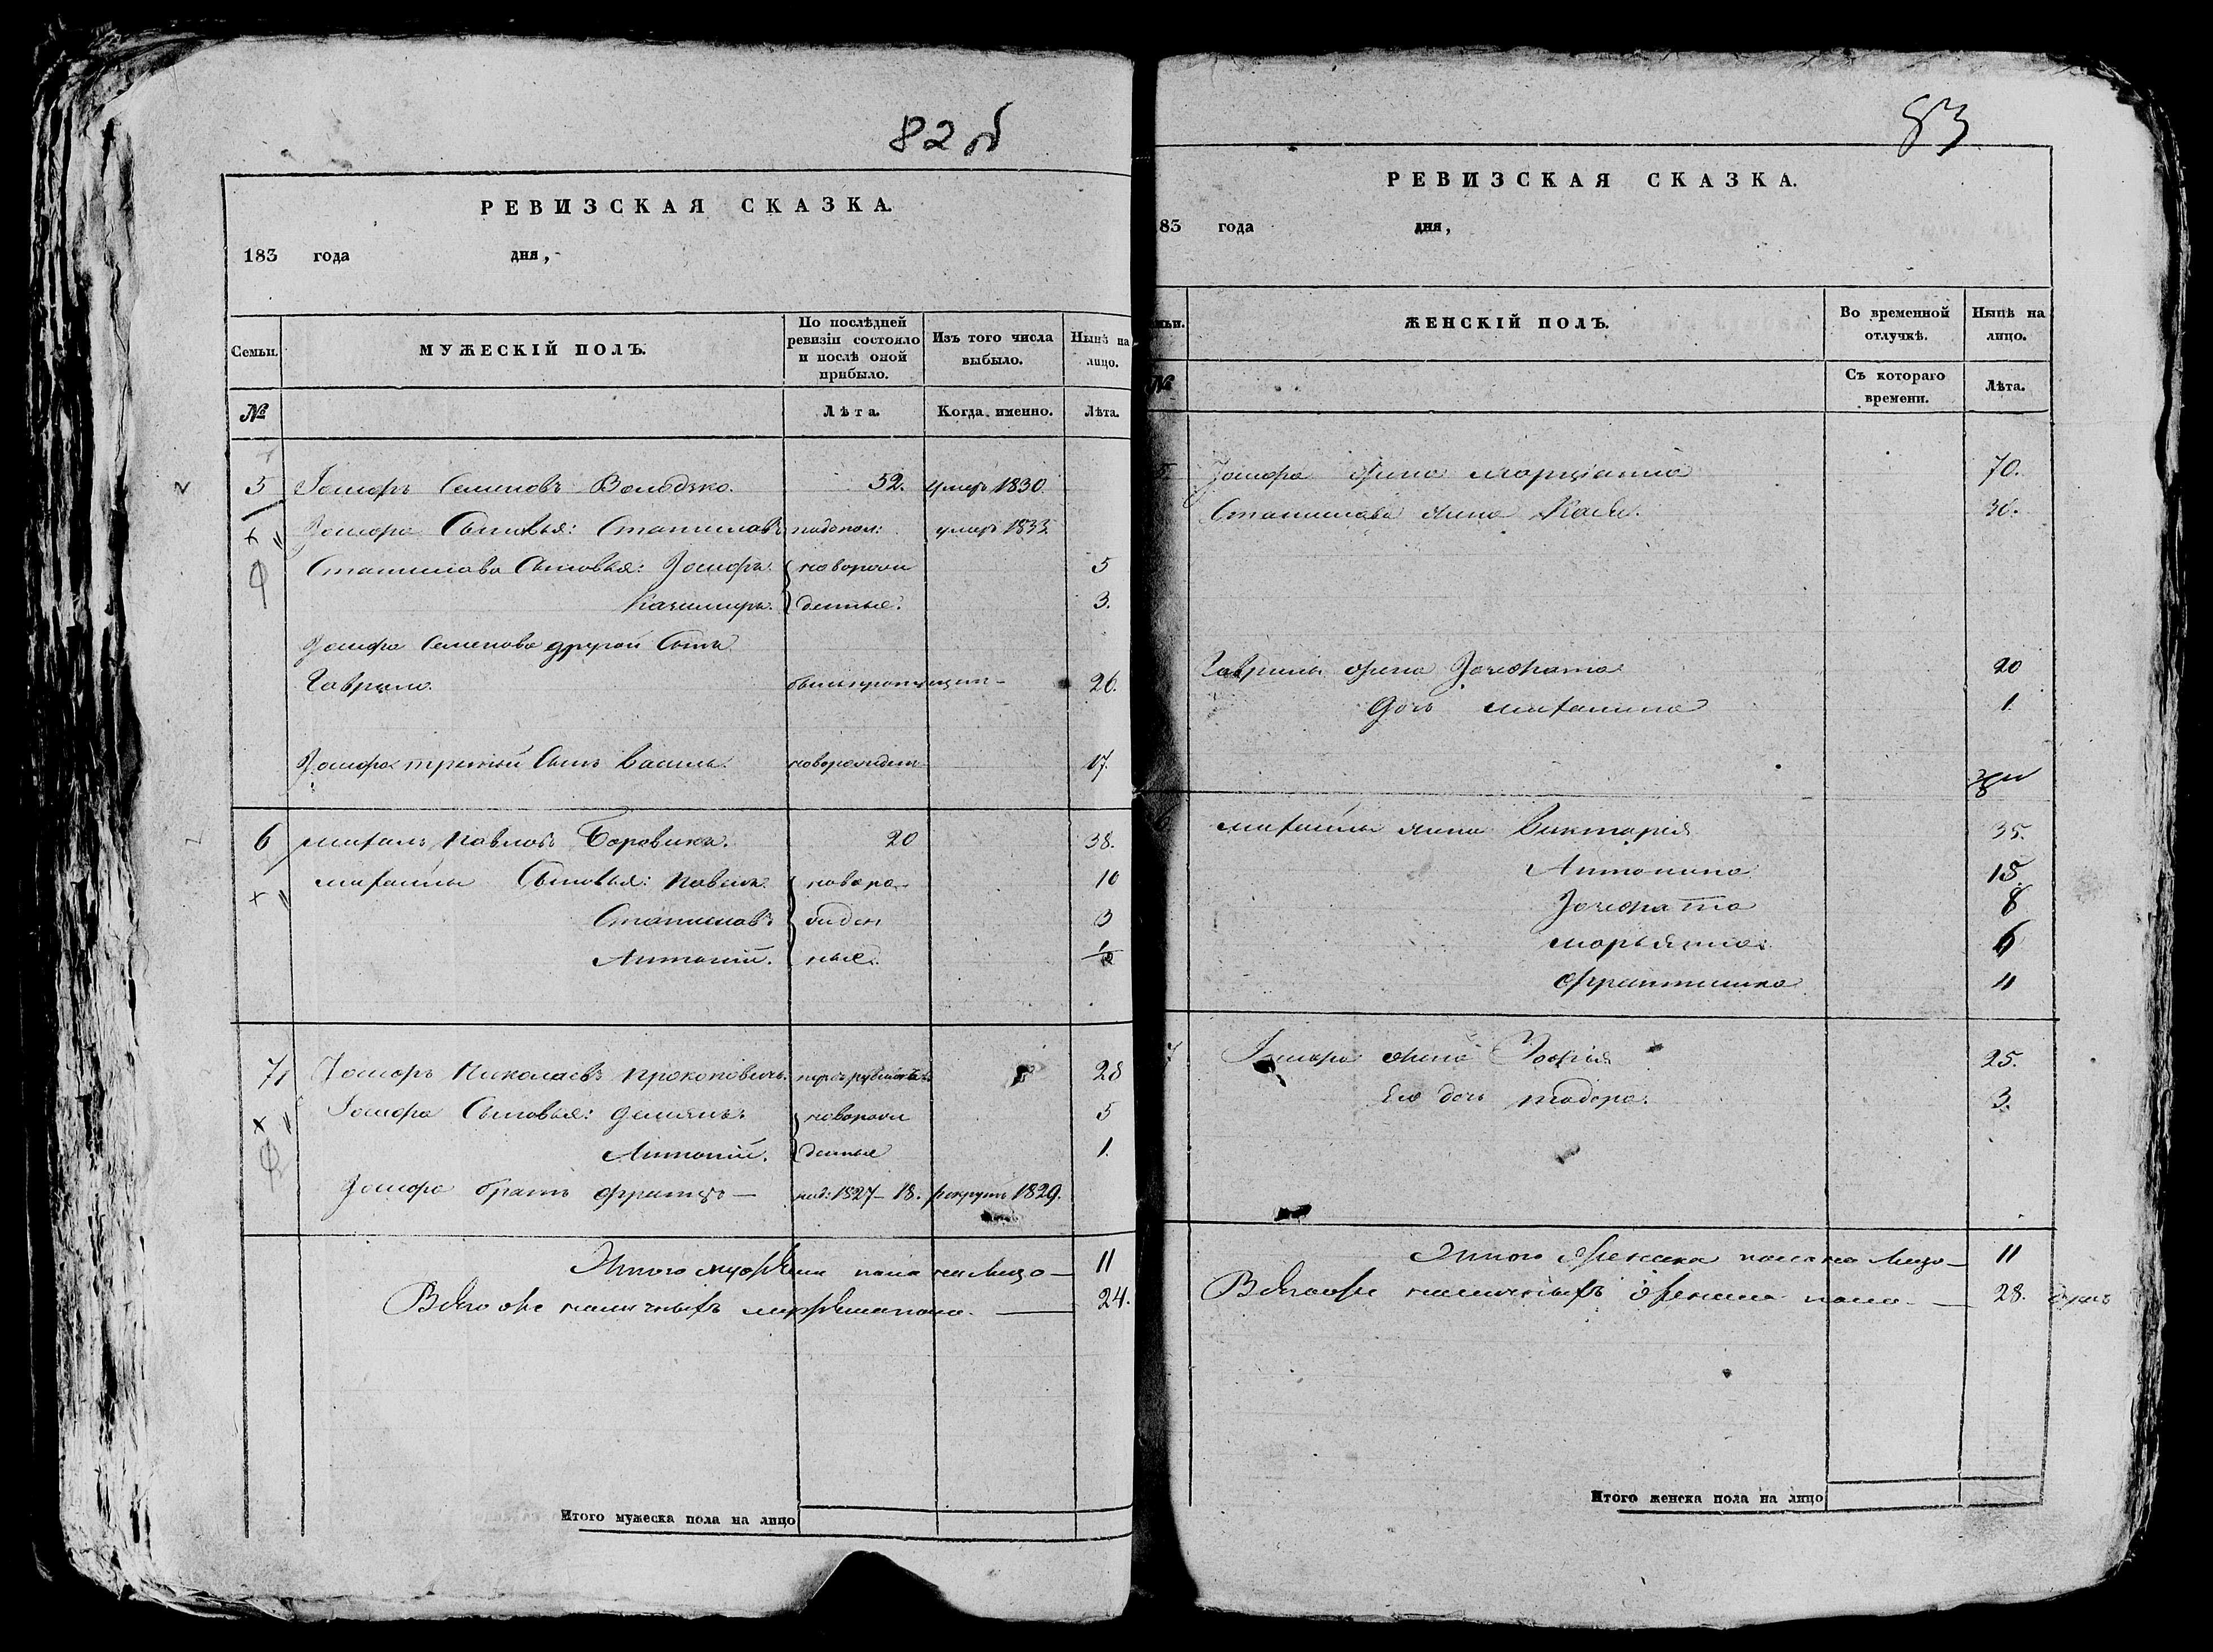 82 об
РЕВИЗСКАЯ СКАЗКА.
183 года дня,
Семьи.
МУЖЕСКІЙ ПОЛЪ.
По послѣдней ревизіи состояло и послѣ оной прибыло.
Изъ того числа выбыло.
Нынѣ на лицо.
№
Лѣта.
Когда именно.
Лѣта.
5 Іосифъ Семеновъ Володзко. 52. умеръ 1830
Іосифа Сыновья: Станиславъ умеръ 1833
Станислава Сыновья: Іосифъ новорож 5
Казимиръ. денные. 3.
Іосифа Семенова другой Сынъ
Гаврило. 26.
Іосифа третій Сынъ Василь. новорожден 17.
6 Михалъ Павловъ Боровикъ. 20 38.
Михайлы Сыновья: Павелъ новоро 10
Станиславъ жден 3
Антоній. ные. 1/2
7 Іосифъ Николаевъ Прокоповичъ. 28
Іосифа Сыновья: Демьянъ новорож 5
Антоній. денные 1.
Іосифа братъ Францъ — 1827 — 18. рекрутъ 1829.
Итого мужеска пола на лицо — 11
Всего же наличныхъ мужеска пола. — 24.
83
РЕВИЗСКАЯ СКАЗКА.
83 года дня,
ЖЕНСКІЙ ПОЛЪ.
Во временной отлучкѣ.
Нынѣ на лицо.
№
Съ котораго времени.
Лѣта.
5. Іосифа жена Марціанна 70.
Станислава жена Касія. 30.
Гаврилы жена Зачефата 20
Дочь Михалина 1.
6 Михайлы жена Викторія 35.
Антонина 15.
Іозефата 8
Марьянна 6
Франтишка 4
7 Іосифа жена Зофія 25.
Его дочь Теодора. 3.
Итого женска пола на лицо — 11
Всего же наличныхъ женска пола. — 28.
Итого мужеска пола на лицо
Итого женска пола на лицо